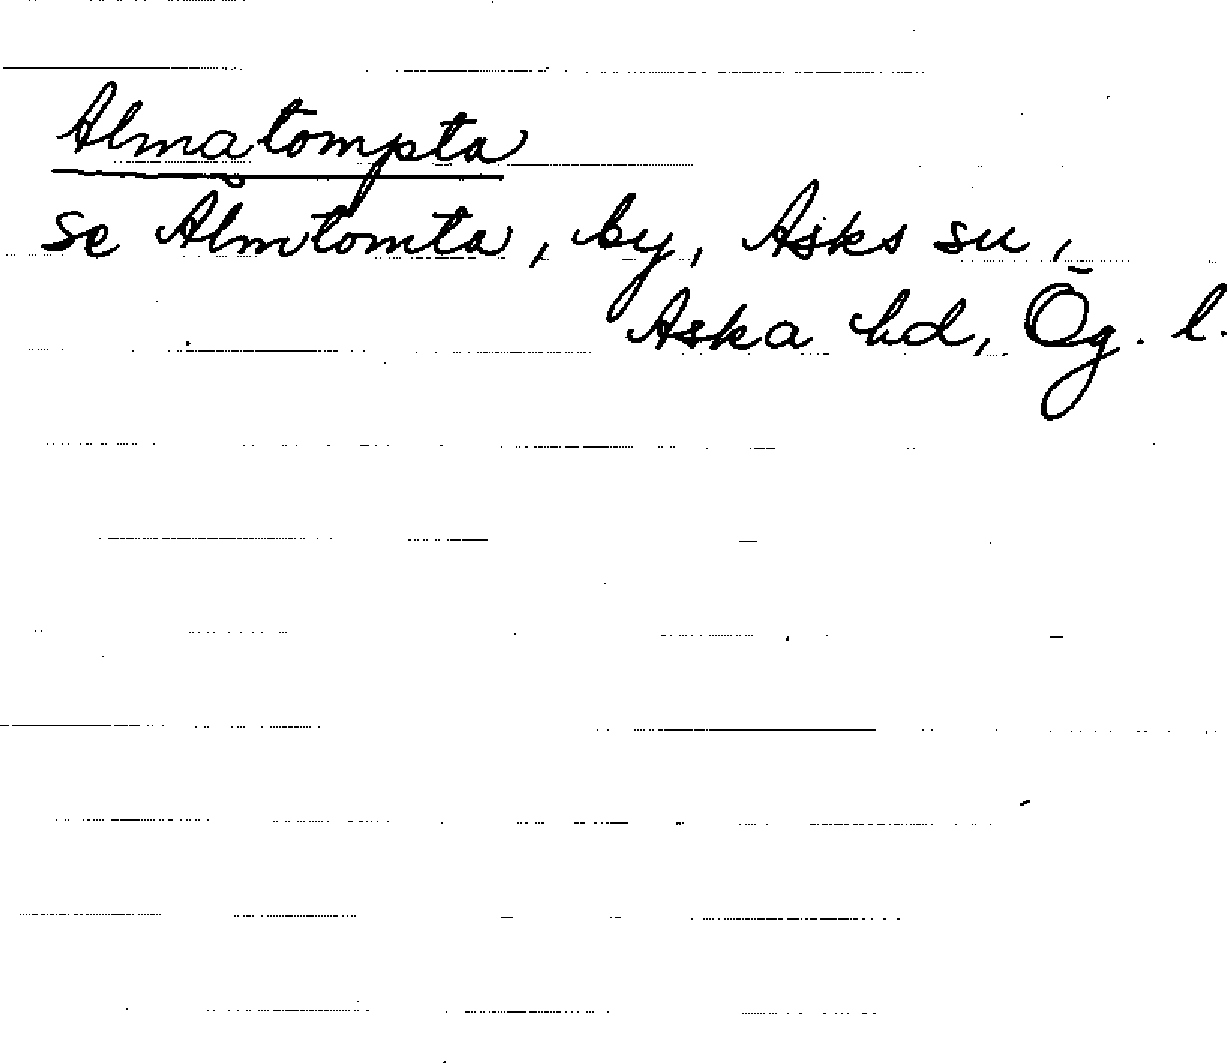 Almatompta
se Älmtomta, by, Asks sn,
Aska hd, Ög. l.